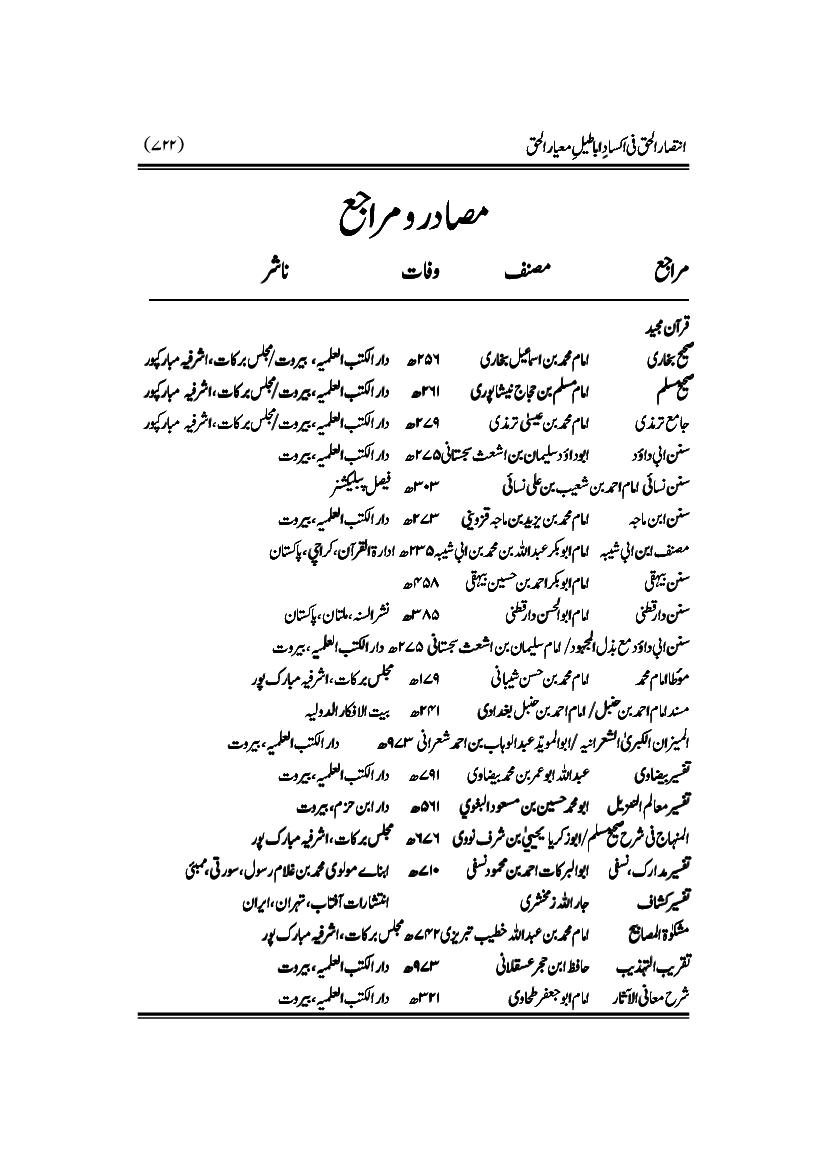 انتصار الحق فی اکساد اباطیل معیار الحق (۷۲۲)
مصادر و مراجع
مراجع مصنف وفات ناشر
قرآن مجید
صحیح بخاری امام محمد بن اسماعیل بخاری ۲۵۶ھ دار الکتب العلمیہ، بیروت/مجلس برکات، اشرفیہ مبارکپور
صحیح مسلم امام مسلم بن حجاج نیشاپوری ۲۶۱ھ دار الکتب العلمیہ، بیروت/مجلس برکات، اشرفیہ مبارکپور
جامع ترمذی امام محمد بن عیسیٰ ترمذی ۲۷۹ھ دار الکتب العلمیہ، بیروت/مجلس برکات، اشرفیہ مبارکپور
سنن ابی داؤد ابوداؤد سلیمان بن اشعث سجستانی ۲۷۵ھ دار الکتب العلمیہ، بیروت
سنن نسائی امام احمد بن شعیب بن علی نسائی ۳۰۳ھ فیصل پبلیکشنز
سنن ابن ماجہ امام محمد بن یزید بن ماجہ قزوینی ۲۷۳ھ دار الکتب العلمیہ، بیروت
مصنف ابن ابی شیبہ امام ابوبکر عبداللہ بن محمد بن ابی شیبہ ۲۳۵ھ ادارۃ القرآن، کراچی، پاکستان
سنن بیہقی امام ابوبکر احمد بن حسین بیہقی ۴۵۸ھ
سنن دارقطنی امام ابوالحسن دارقطنی ۳۸۵ھ نشر السنہ، ملتان، پاکستان
سنن ابی داؤد مع بذل المجہود/ امام سلیمان بن اشعث سجستانی ۲۷۵ھ دار الکتب العلمیہ، بیروت
موطا امام محمد امام محمد بن حسن شیبانی ۱۷۹ھ مجلس برکات، اشرفیہ مبارک پور
مسند امام احمد بن حنبل/ امام احمد بن حنبل بغدادی ۲۴۱ھ بیت الافکار الدولیہ
المیزان الکبریٰ الشعرانیہ /ابوالمویّد عبدالوہاب بن احمد شعرانی ۹۷۳ھ دار الکتب العلمیہ، بیروت
تفسیر بیضاوی عبداللہ ابوعمر بن محمد بیضاوی ۷۹۱ھ دار الکتب العلمیہ، بیروت
تفسیر معالم التنزیل ابو محمد حسین بن مسعود البغوي ۵۶۱ھ دار ابن حزم، بیروت
المنہاج فی شرح صحیح مسلم/ابوزکریا یحییٰ بن شرف نووی ۶۷۶ھ مجلس برکات، اشرفیہ مبارک پور
تفسیر مدارک، نسفی ابوالبرکات احمد بن محمود نسفی ۷۱۰ھ ابناے مولوی محمد بن غلام رسول، سورتی، ممبئی
تفسیر کشاف جار اللہ زمخشری انتشارات آفتاب، تہران، ایران
مشکوٰۃ المصابیح امام محمد بن عبداللہ خطیب تبریزی ۷۴۲ھ مجلس برکات، اشرفیہ مبارک پور
تقریب التہذیب حافظ ابن حجر عسقلانی ۹۷۳ھ دار الکتب العلمیہ، بیروت
شرح معانی الآثار امام ابو جعفر طحاوی ۳۲۱ھ دار الکتب العلمیہ، بیروت